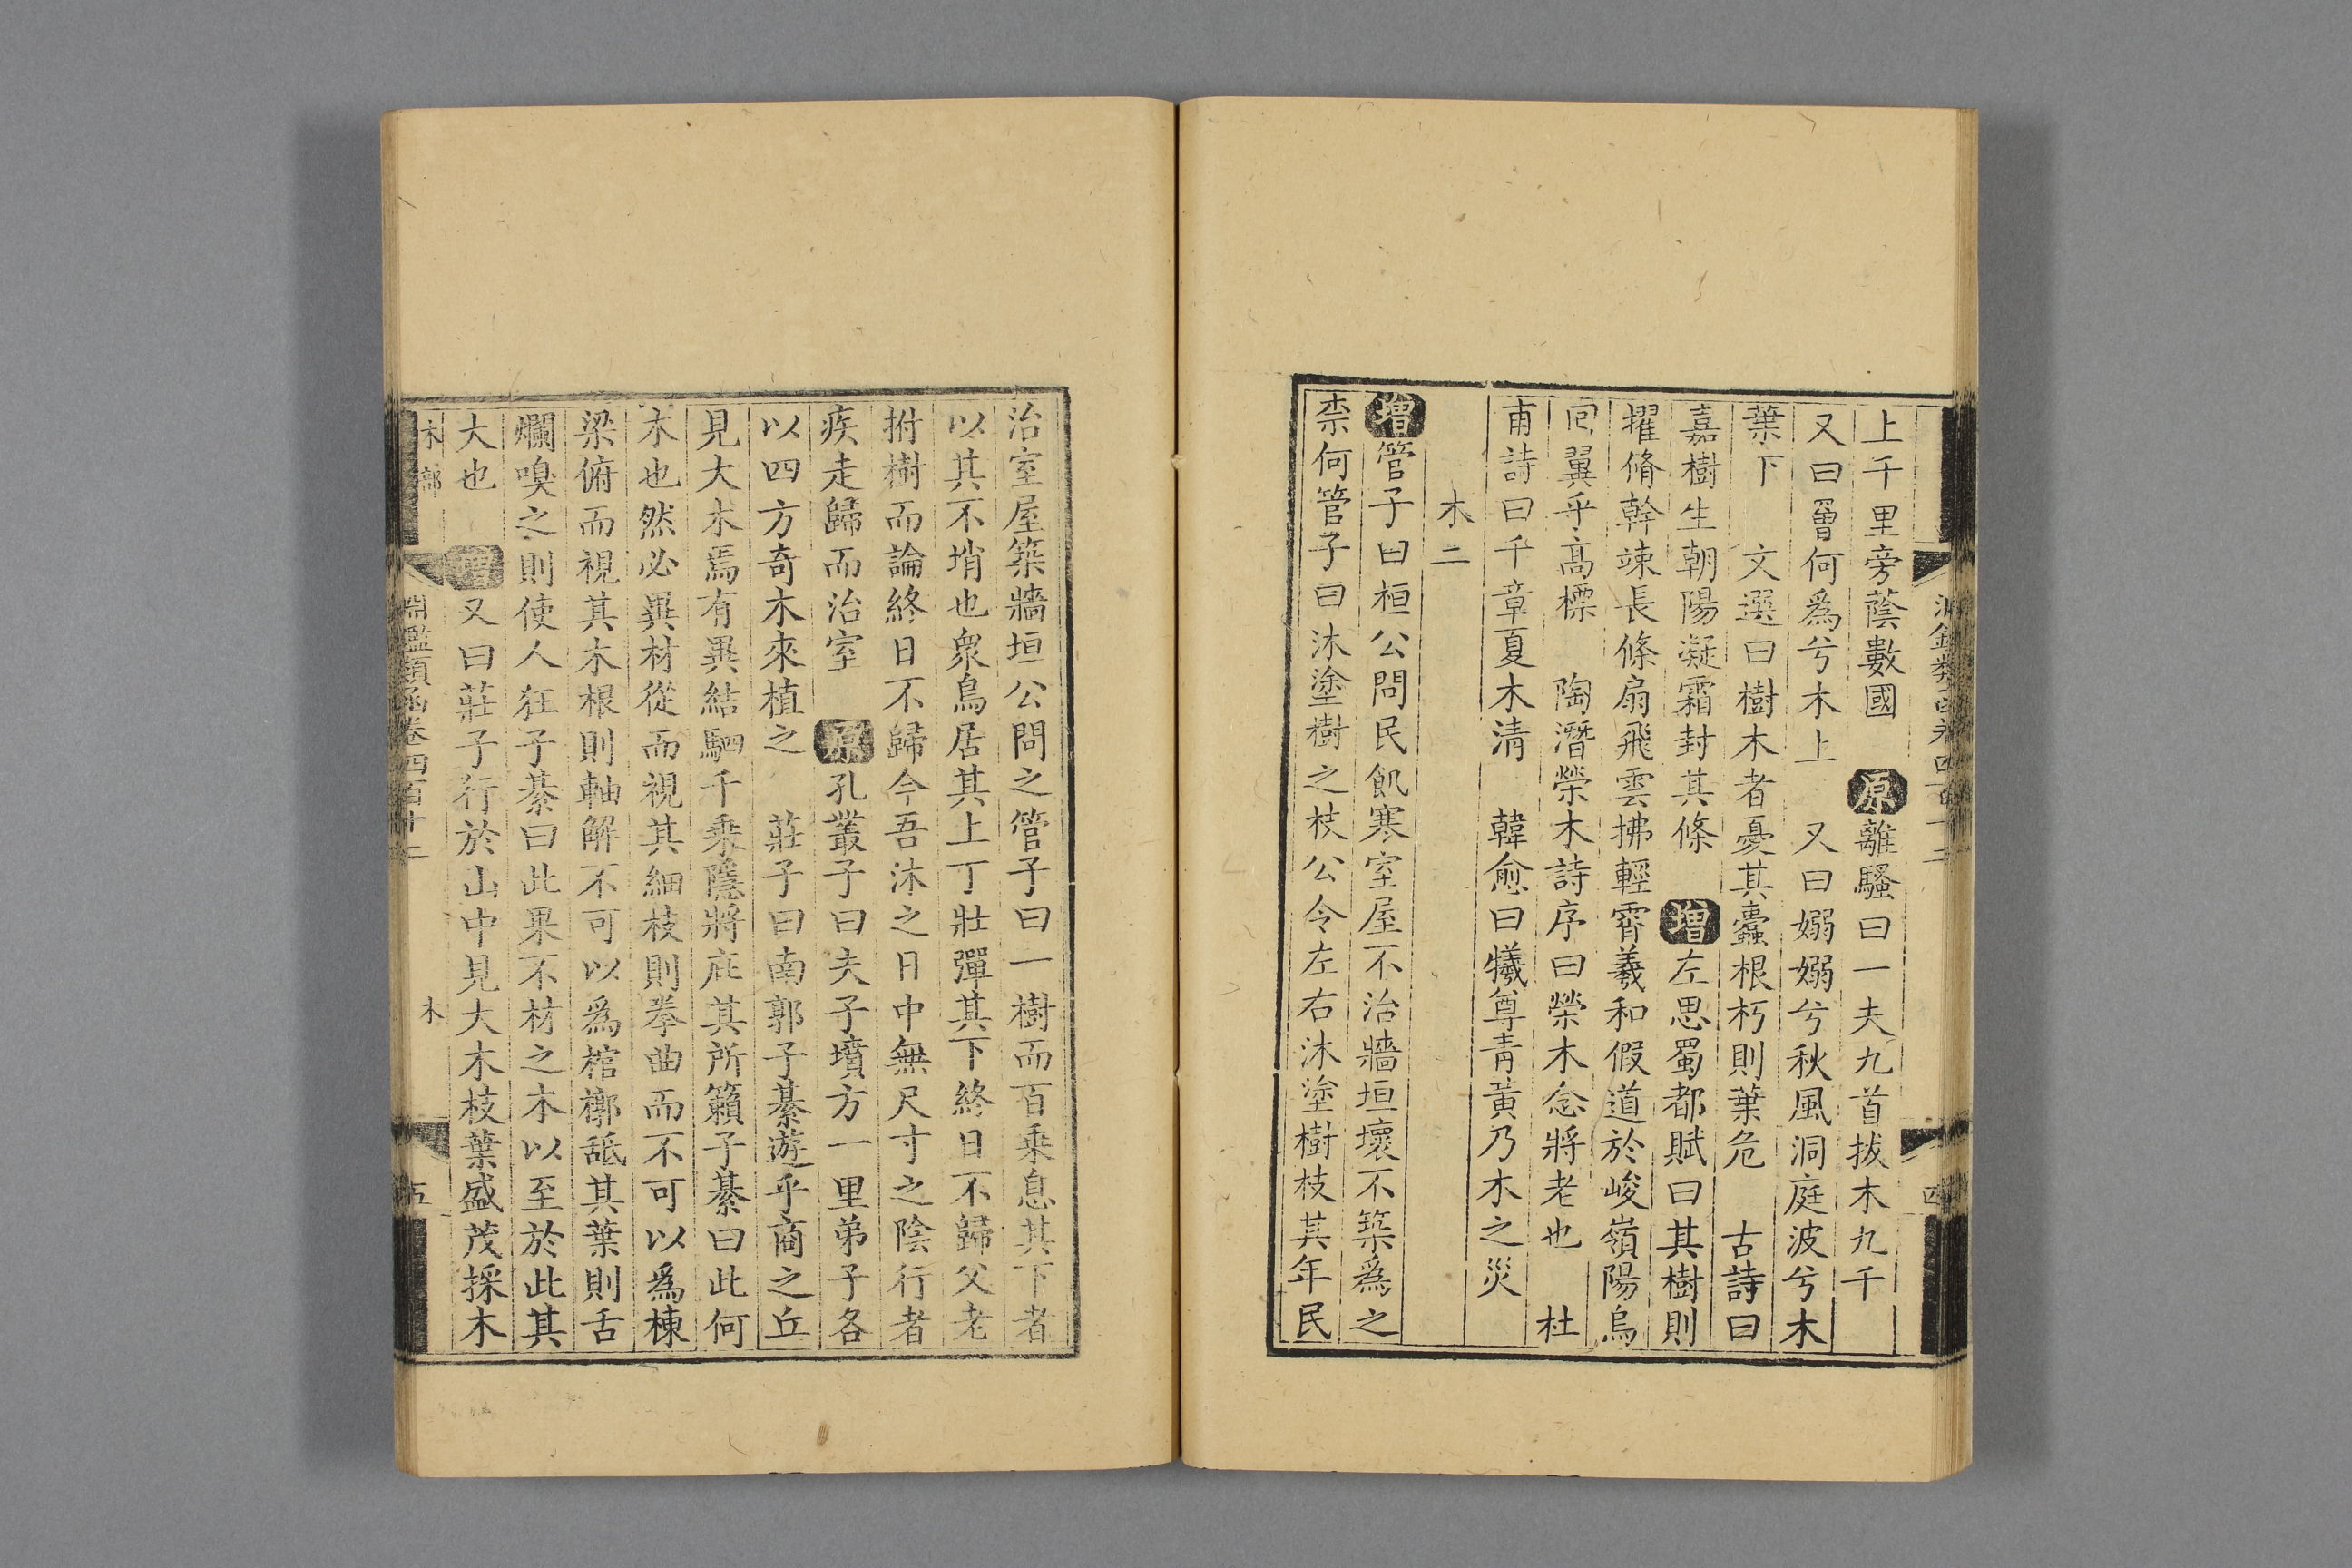 上千里旁蔭數國　原離騷曰一夫九首拔木九千
又曰罾何爲兮木上　又曰嫋嫋兮秋風洞庭波兮木
葉下　文選曰樹木者憂其蠹根朽則葉危　古詩曰
嘉樹生朝陽凝霜封其條　增左思蜀都賦曰其樹則
擢脩幹竦長條扇飛雲拂輕霄羲和假道於峻嶺陽烏
回翼乎高標　陶潛榮木詩序曰榮木念將老也　杜
甫詩曰千章夏木清　韓愈曰犧尊青黃乃木之災
木二
增管子曰桓公問民飢寒室屋不治牆垣壞不築爲之
柰何管子曰沐塗樹之枝公令左右沐塗樹枝其年民
治室屋築牆垣公問之管子曰一樹而百乗息其下者
以其不梢也衆鳥居其上丁壯彈其下終日不歸父老
拊樹而論終日不歸今吾沐之日中無尺寸之陰行者
疾走歸而治室　原孔叢子曰夫子墳方一里弟子各
以四方奇木來植之　莊子曰南郭子綦遊乎商之丘
見大木焉有異結駟千乗隱將庇其所籟子綦曰此何
木也然必異材從而視其細枝則拳曲而不可以爲棟
梁俯而視其木根則軸解不可以爲棺槨舐其葉則舌
爛嗅之則使人狂子綦曰此果不材之木以至於此其
大也　增又曰莊子行於山中見大木枝葉盛茂採木
木部　淵鑑類函卷四百十二　木　五